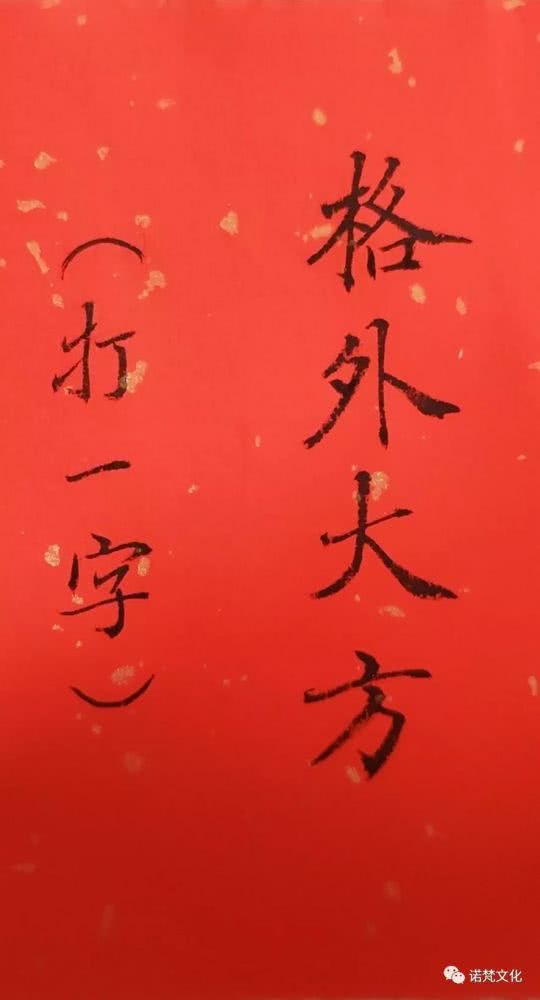 格外大方
（打一字）
诺梵文化